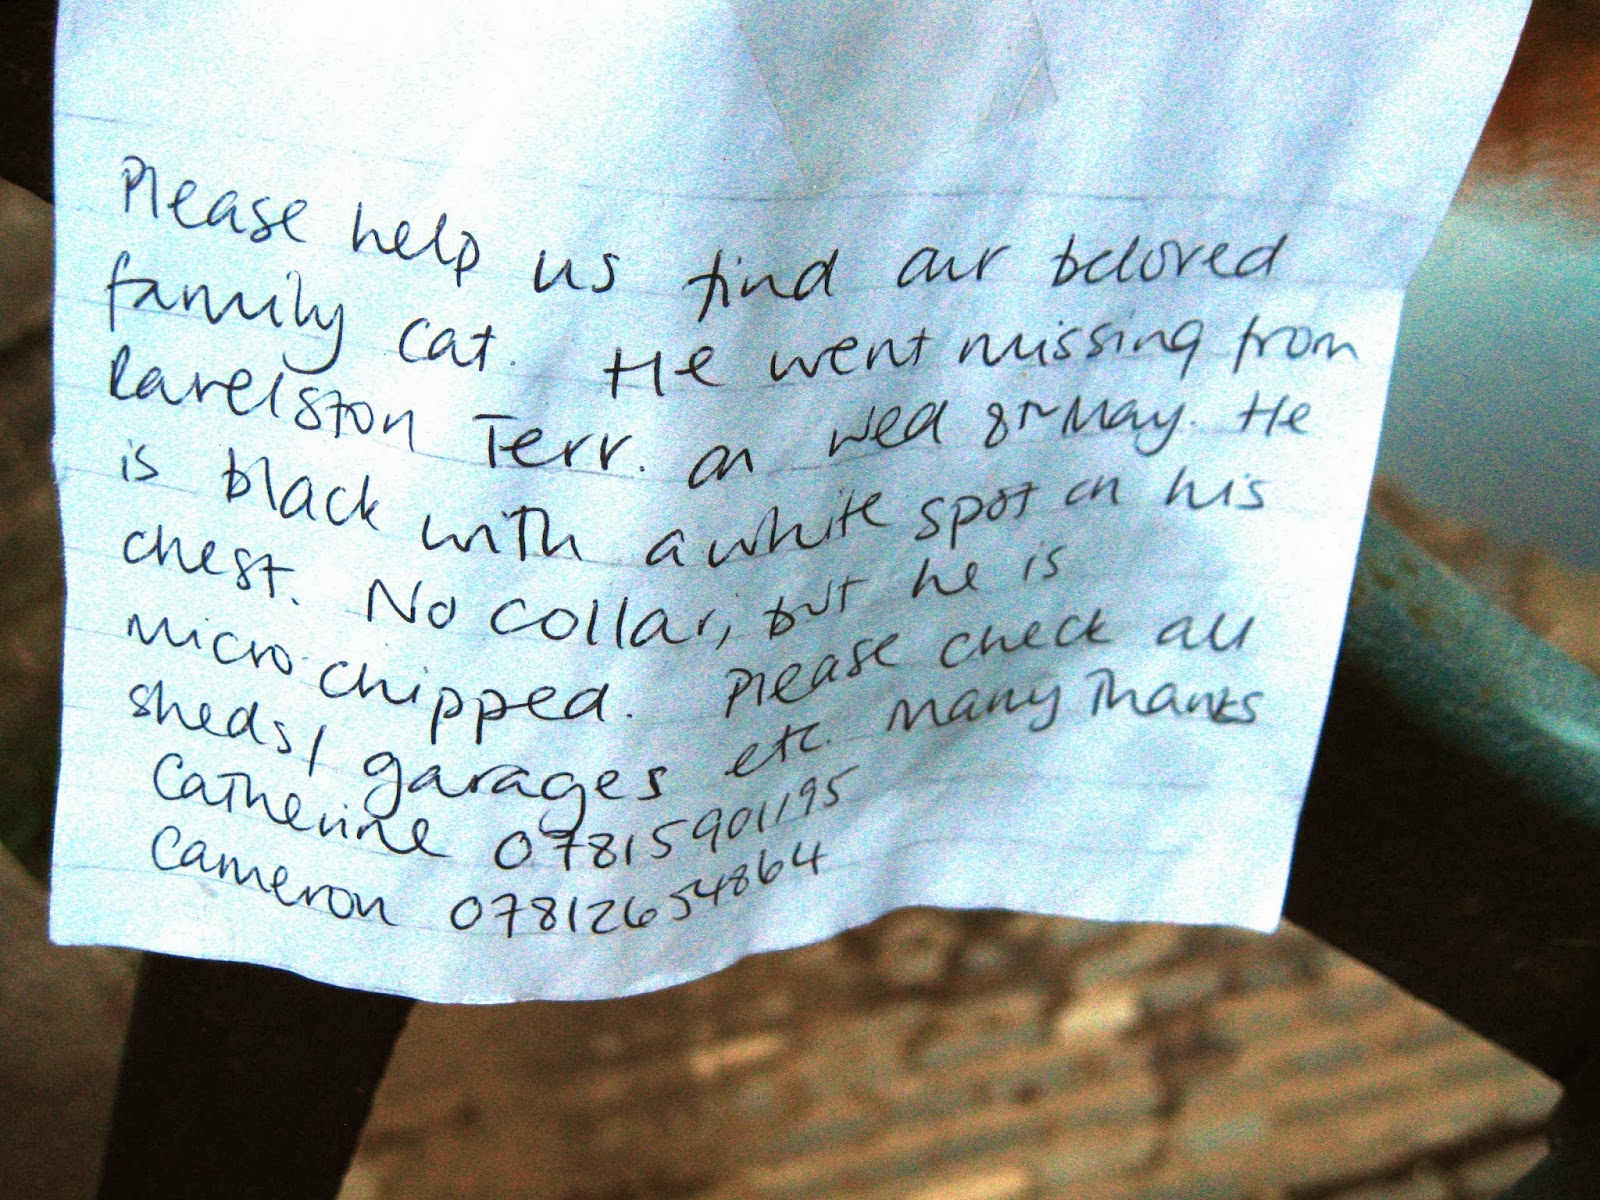 Please help us find our beloved
family cat. He went missing from
Ravelston Terr. on Wed 8th May. He
is black with a white spot on his
chest. No collar, but he is
micro chipped. Please check all
sheds/garages etc. Many Thanks
Catherine 07815901195
Cameron 07812654864